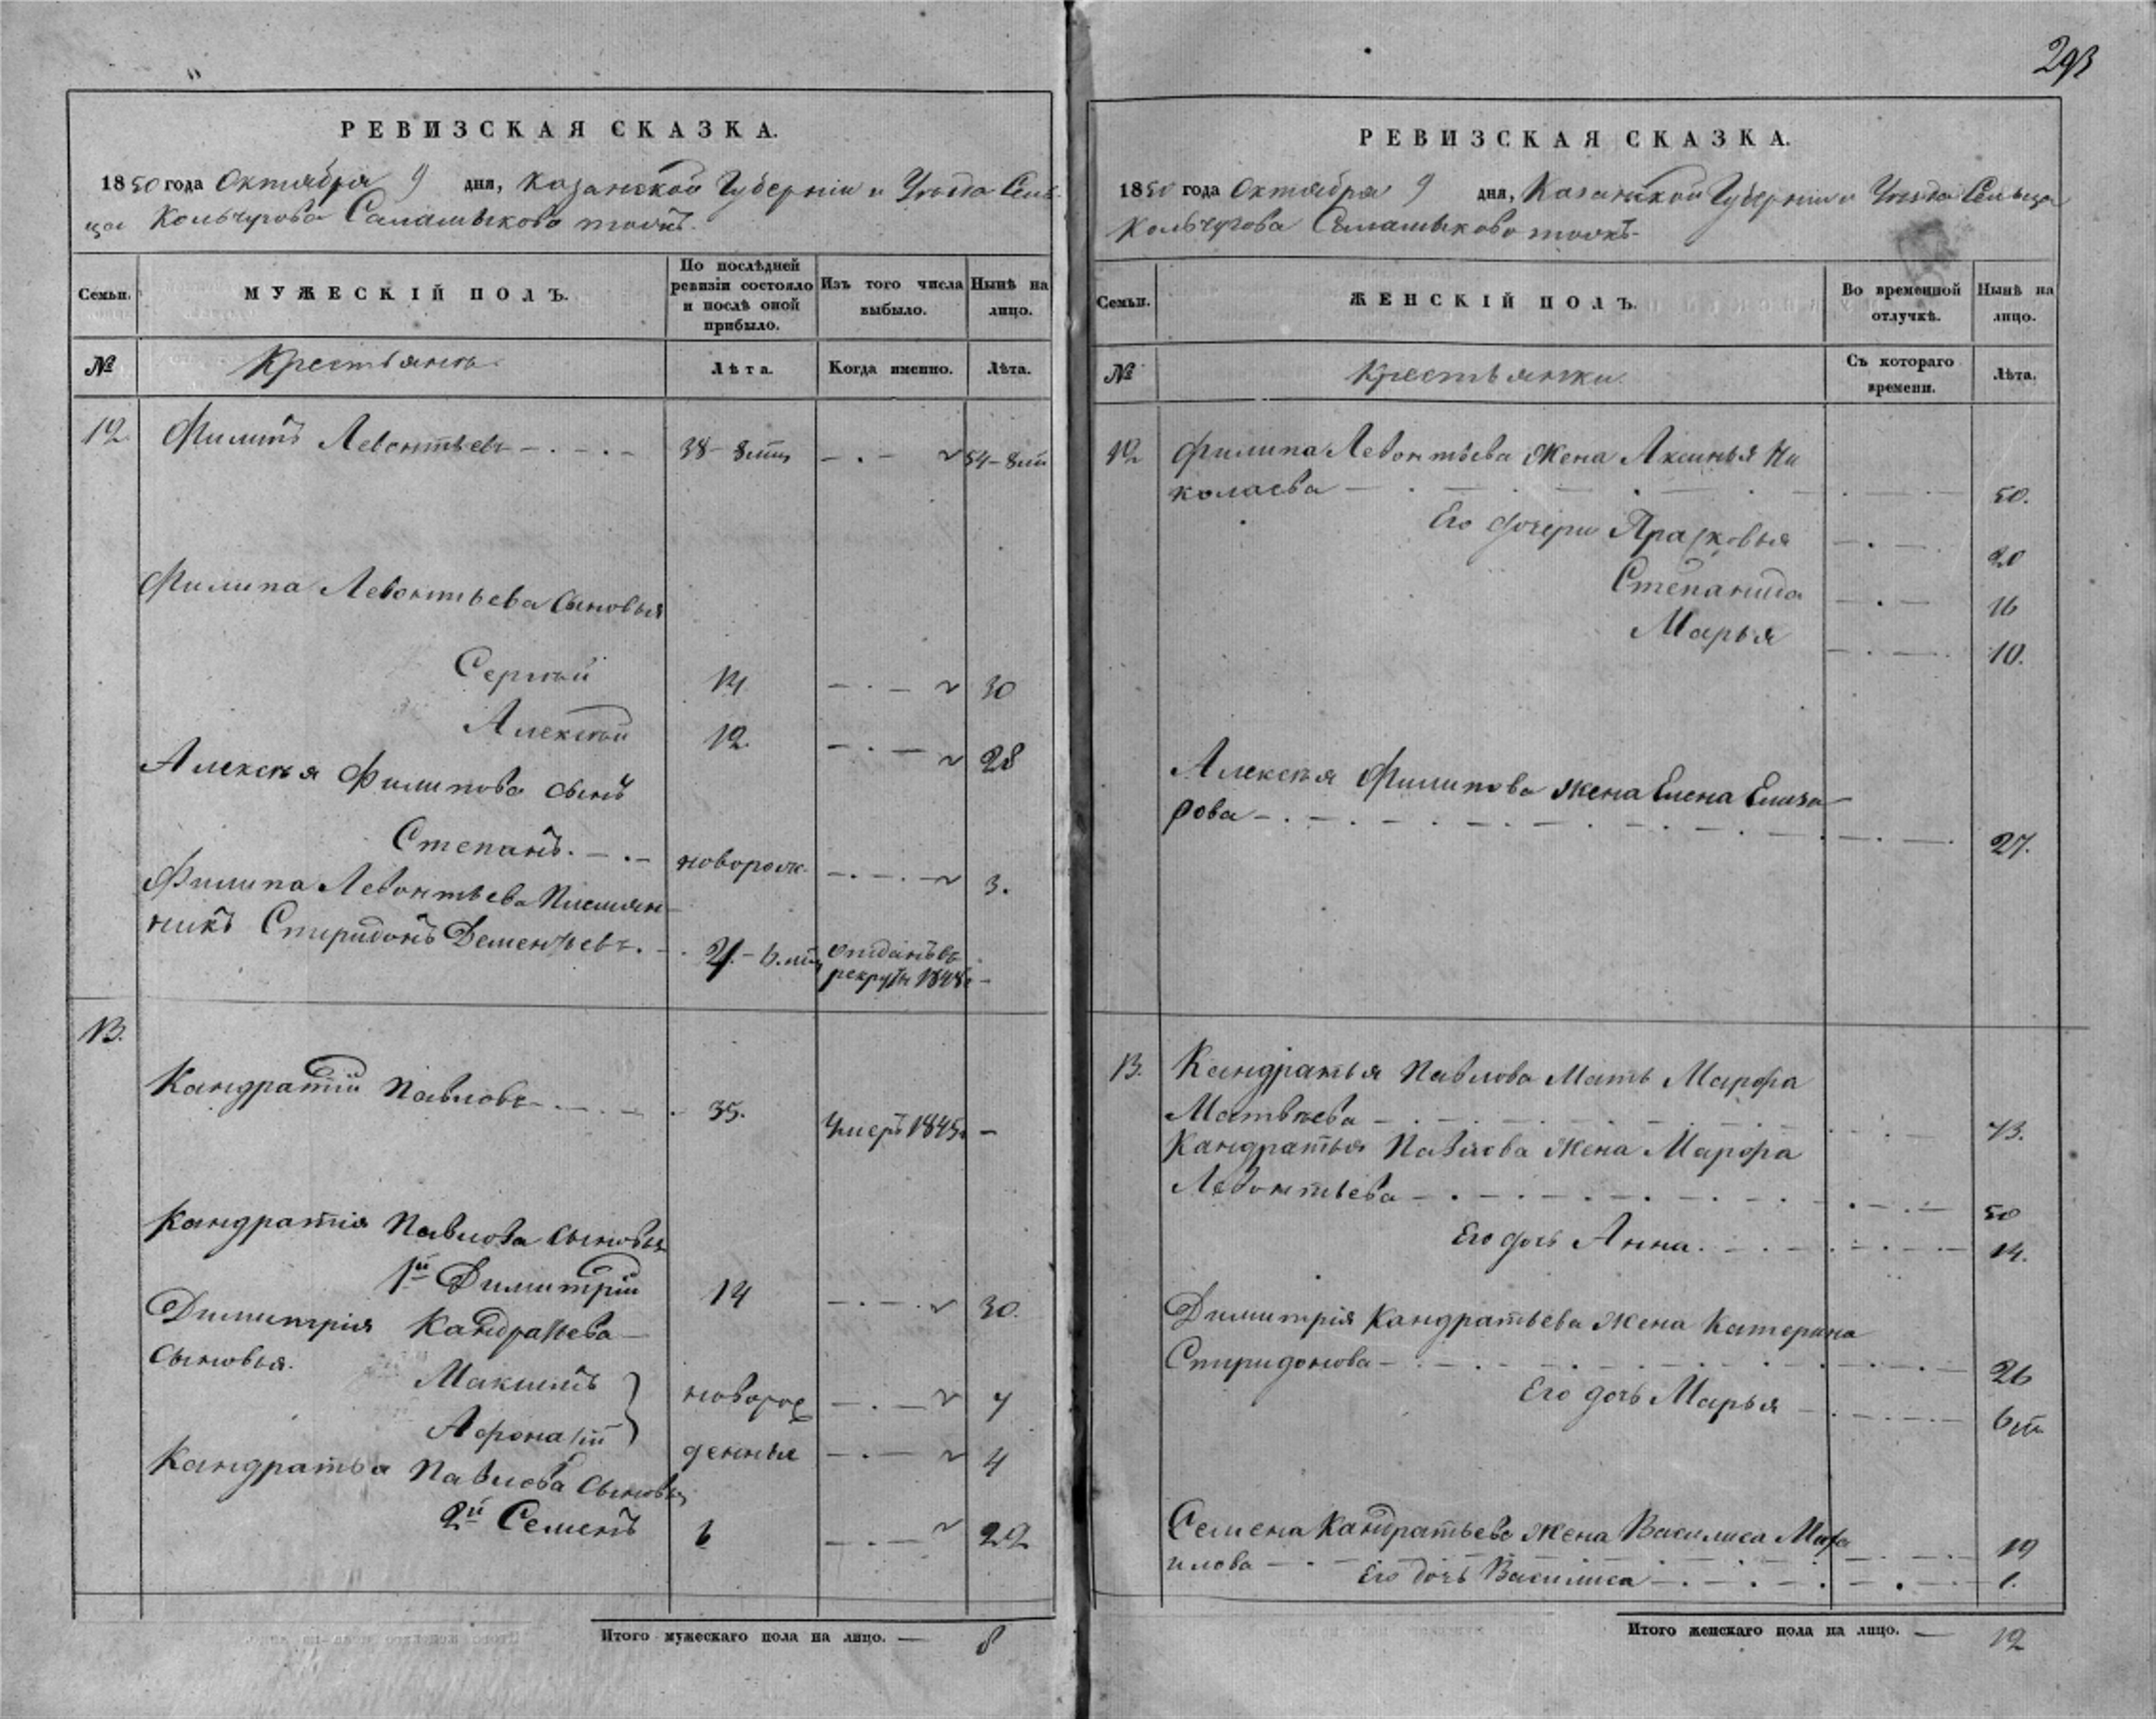 293
РЕВИЗСКАЯ СКАЗКА.
1850 года Октября 9 дня, Казанской Губерніи и Уѣзда Сель-
ца Кольчугова
Семьи.
МУЖЕСКІЙ ПОЛЪ.
По послѣдней ревизіи состояло и послѣ оной прибыло.
Изъ того числа выбыло.
Нынѣ на лицо.
№
Крестьяне
Лѣта.
Когда именно.
Лѣта.
12. Филипъ Левонтьевъ 38-8 54-8
Филипа Левонтьева Сыновья
Сергѣй 14 30
Алексѣй 12. 28
Алексѣя Филипова сынъ
Степанъ. новорож. 3.
Филипа Левонтьева Племян-
никъ Спиридонъ Дементьевъ. отданъ въ
рекруты
13.
Кандратій Павловъ 35. Умеръ 1845 —
Кандратія Павлова сыновья
1й Димитрій 14 30.
Димитрія Кандратьева
Сыновья.
Максимъ новорож 7
Афонасій денныя 4
Кандратья Павлова Сыновья
2й Семенъ 6 22
Итого мужескаго пола на лицо. — 8
РЕВИЗСКАЯ СКАЗКА.
1850 года Октября 9 дня, Казанской Губерніи и Уѣзда Сельца
Кольчугова
Семьи.
ЖЕНСКІЙ ПОЛЪ.
Во временной отлучкѣ.
Нынѣ на лицо.
№
Крестьянки
Съ котораго времени.
Лѣта.
12 Филипа Левонтьева Жена Аксинья Ни
колаева 50.
Его дочери Прасковья 20
Степанида 16
Марья 10.
Алексѣя Филипова жена Елена Елиза-
рова 27.
13. Кандратья Павлова Мать Марфа
Матвѣева 73.
Кандратья Павлова Жена Марфа
Левонтьева 50
Его дочь Анна. 14.
Димитрія Кандратьева Жена Катерина
Спиридонова 26
Его дочь Марья
Семена Кандратьева Жена Василиса
илова 19
Его дочь Василиса 1.
Итого женскаго пола на лицо. — 12